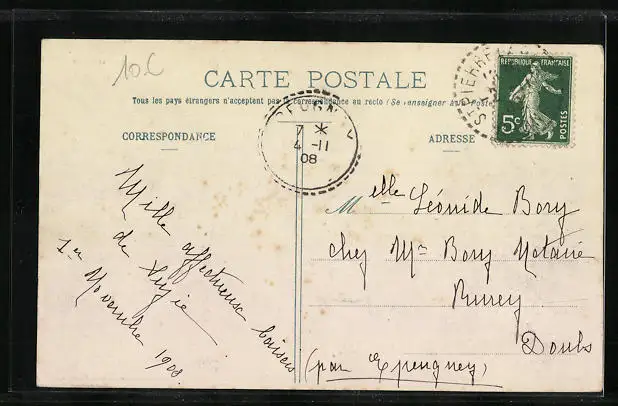 10.C
CARTE POSTALE
Tous les pays étrangers n'acceptent pas la correspondance au recto (Se renseigner à la Poste)
CORRESPONDANCE
ADRESSE
REPUBLIQUE FRANÇAISE
5c
POSTES
ST PIERRE
7 *
4 -11
08
Mille affectueux baisers
de
1er Novembre 1908
Melle Léonide Bory
chez Mr Bory Notaire
Rurey
Doubs
(par Epeugney)